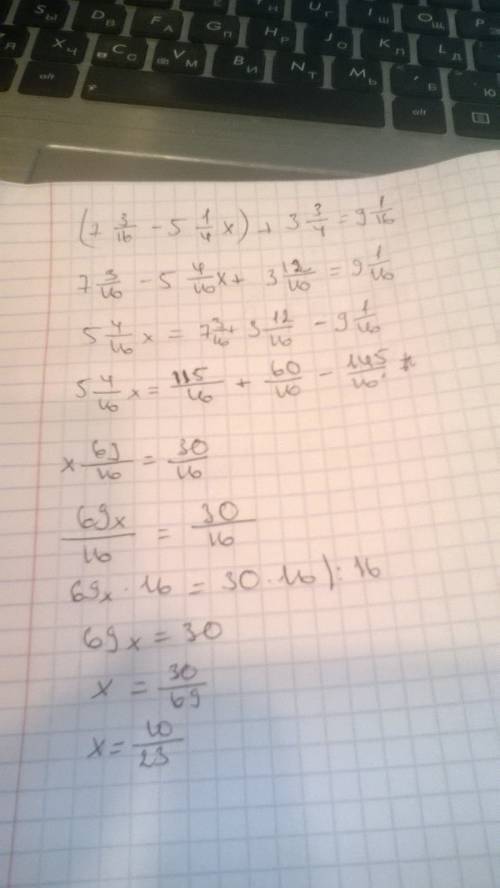 Sы Dв Fа Gп Hр Jо Kл Lд
Xч Cс Vм Bи Nт Mь Б Ю
alt alt
(7 3/16 - 5 1/4 x) + 3 3/4 = 9 1/16
7 3/16 - 5 4/16 x + 3 12/16 = 9 1/16
5 4/16 x = 7 3/16 + 3 12/16 - 9 1/16
5 4/16 x = 115/16 + 60/16 - 145/16
x 69/16 = 30/16
69x/16 = 30/16
69x · 16 = 30 · 16 ) : 16
69x = 30
x = 30/69
x = 10/23